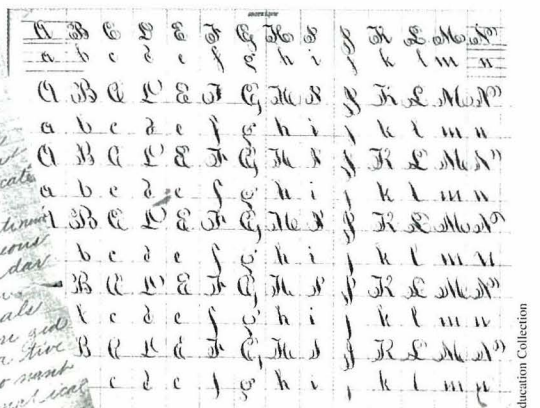 A B C D E F G H I J K L M N
a b c d e f g h i j k l m n
A B C D E F G H I J K L M N
a b c d e f g h i j k l m n
A B C D E F G H I J K L M N
a b c d e f g h i j k l m n
A B C D E F G H I J K L M N
b c d e f g h i j k l m n
B C D E F G H I J K L M N
b c d e f g h i j k l m n
B C D E F G H I J K L M N
c d e f g h i j k l m n
cate
dar
als
gid
tive
want
ical
ducation Collection